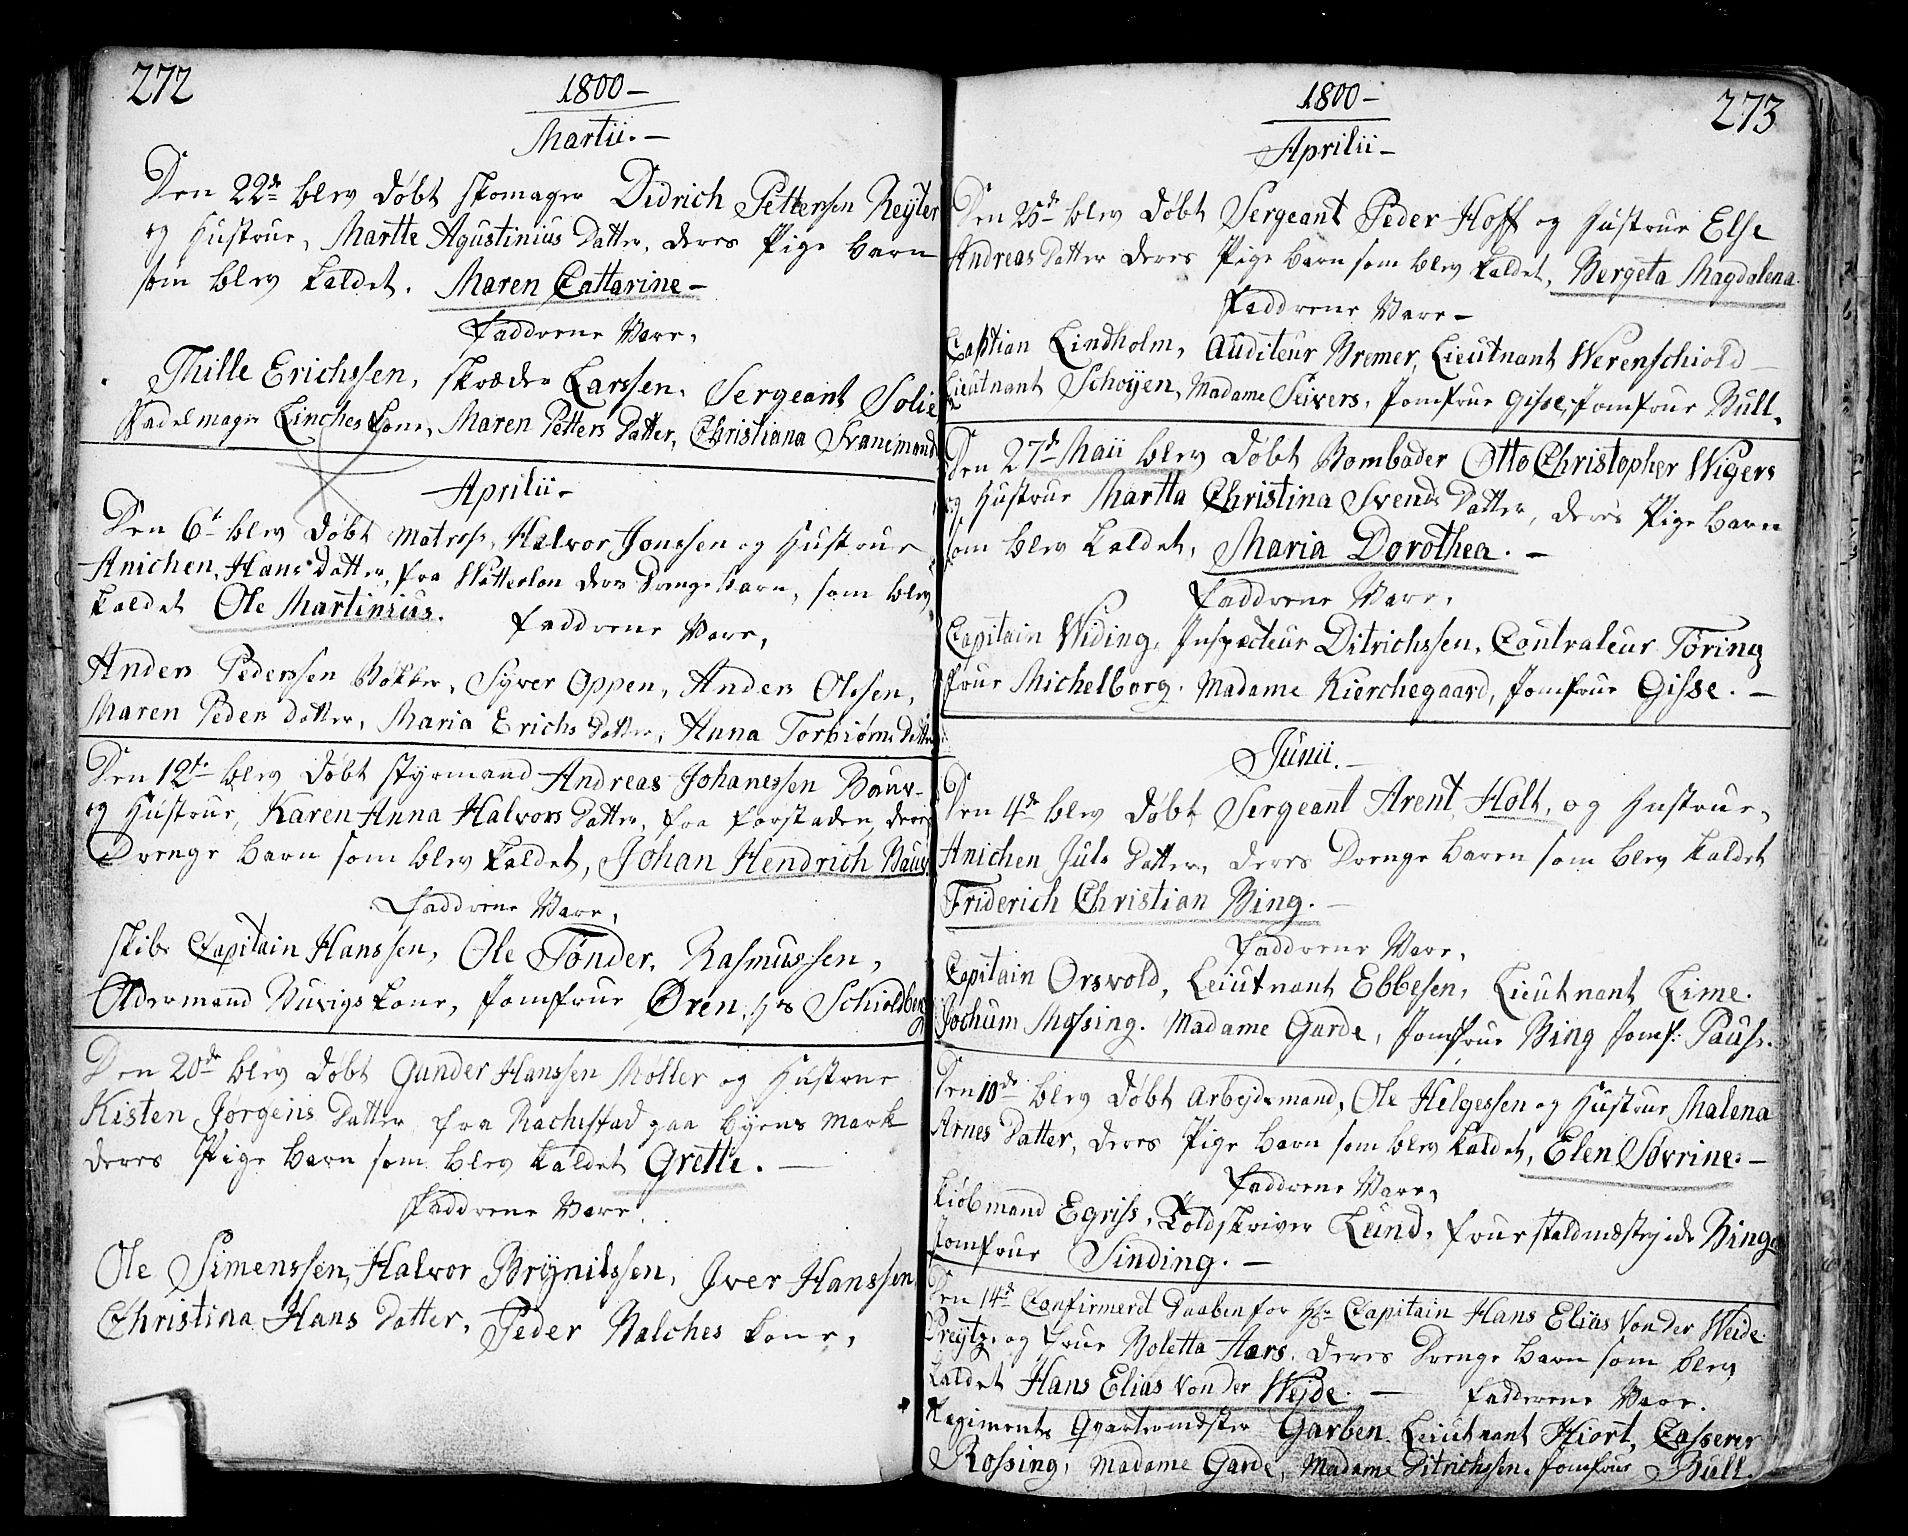 272
1800 –
Martii. –
Den 22de blev døbt skomager Didrich Pettersen Reyler
og Hustrue, Martte Agustinius Datter, deres Pige barn
som blev kaldet. Maren Cattarine –
Faddrene Vare,
Thille Erichssen, skræder Larssen, Sergeant Solie
Sadelmager Linches kone, Maren Petters Datter, Christiana Svanemond
Aprilii –
Den 6t blev døbt Matrose, Halvor Jonssen og Hustrue
Anichen, Hans Datter, fra Watterlan deres Drengebarn, som blev
kaldet Ole Martinius. Faddrene Vare,
Anders Pederssen Bøkker, Syver Oppen, Anders Olesen,
Maren Peders datter, Maria Erichs Datter, Anna Torbiørns Datter
Den 12te blev døbt styrmand Andreas Johanessen Baur
og Hustrue, Karen Anna Halvors Datter, fra forstaden, deres
Drenge barn som blev kaldet, Johan Hendrich Baur.
Faddrene Vare,
skibs Capitain Hanssen, Ole Tønder, Rasmussen,
Oldermand Buvigs kone, Jomfrue Øren, Hr Schioldberg
Den 20de blev døbt Gunder Hanssen Møller og Hustrue
Kisten Jørgens Datter fra Rachestad paa byens Mark
deres Pige barn som blev kaldet Grette. –
Faddrene Vare.
Ole Simenssen, Halvor Brynilssen, Iver Hanssen
Christina Hans Datter, Peder Balches kone,
273
1800 –
Aprilii –
Den 25de blev døbt Sergeant Peder Hoff og Hustrue Else
Andreas Datter deres Pige barn som blev kaldet, Bergeta Magdalena.
Faddrene Vare –
Captian Lindholm, Auditeur Bremer, Lieutnant Werenschiold –
Lieutnant Schøyen, Madame Seivers, Jomfrue Gisse, Jomfrue Bull.
Den 27de Maii blev døbt Bombader Otto Christopher Wigers
og Hustrue Martta Christina Svends Datter, deres Pige barn
som blev kaldet, Maria Dorothea. –
Faddrene Vare,
Capitain Widing, Inspecteur Ditrichssen, Contraleur Tøring
frue Michelborg. Madame Kierchegaard, Jomfrue Gisse. –
Junii. –
Den 4de blev døbt Sergeant Arent Holt, og Hustrue,
Anichen Juls Datter, deres Drenge baren som blev kaldet
Friderich Christian Bing. –
Faddrene Vare,
Capitain Orsvold, Leiutnant Ebbesen, Lieutnant Lime.
Jochum Mossing. Madame Garde, Jomfrue Bing Jomf: Pauss.
Den 10de blev døbt Arbejdsmand, Ole Helgessen og Hustrue Malena
Arnes Datter, deres Pige barn som blev kaldet, Elen Søvrine. –
Faddrene Vare,
kiøbmand Egriss, Toldskriver Lund, frue Bing
Jomfrue Sinding. –
Den 14de Confirmerd Daaben for Hr. Capitain Hans Elias Von der Weide
Preytz, og frue Boletta Aars, deres Drenge barn som blev
kaldet Hans Elias Von der Wejde. – Fadderene Vare.
Regiments Qvartermæster Garben Lieutnant Hiort, Casserer
Rossing, Madame Garde, Madame Ditrichssen. Jomfrue Bull.